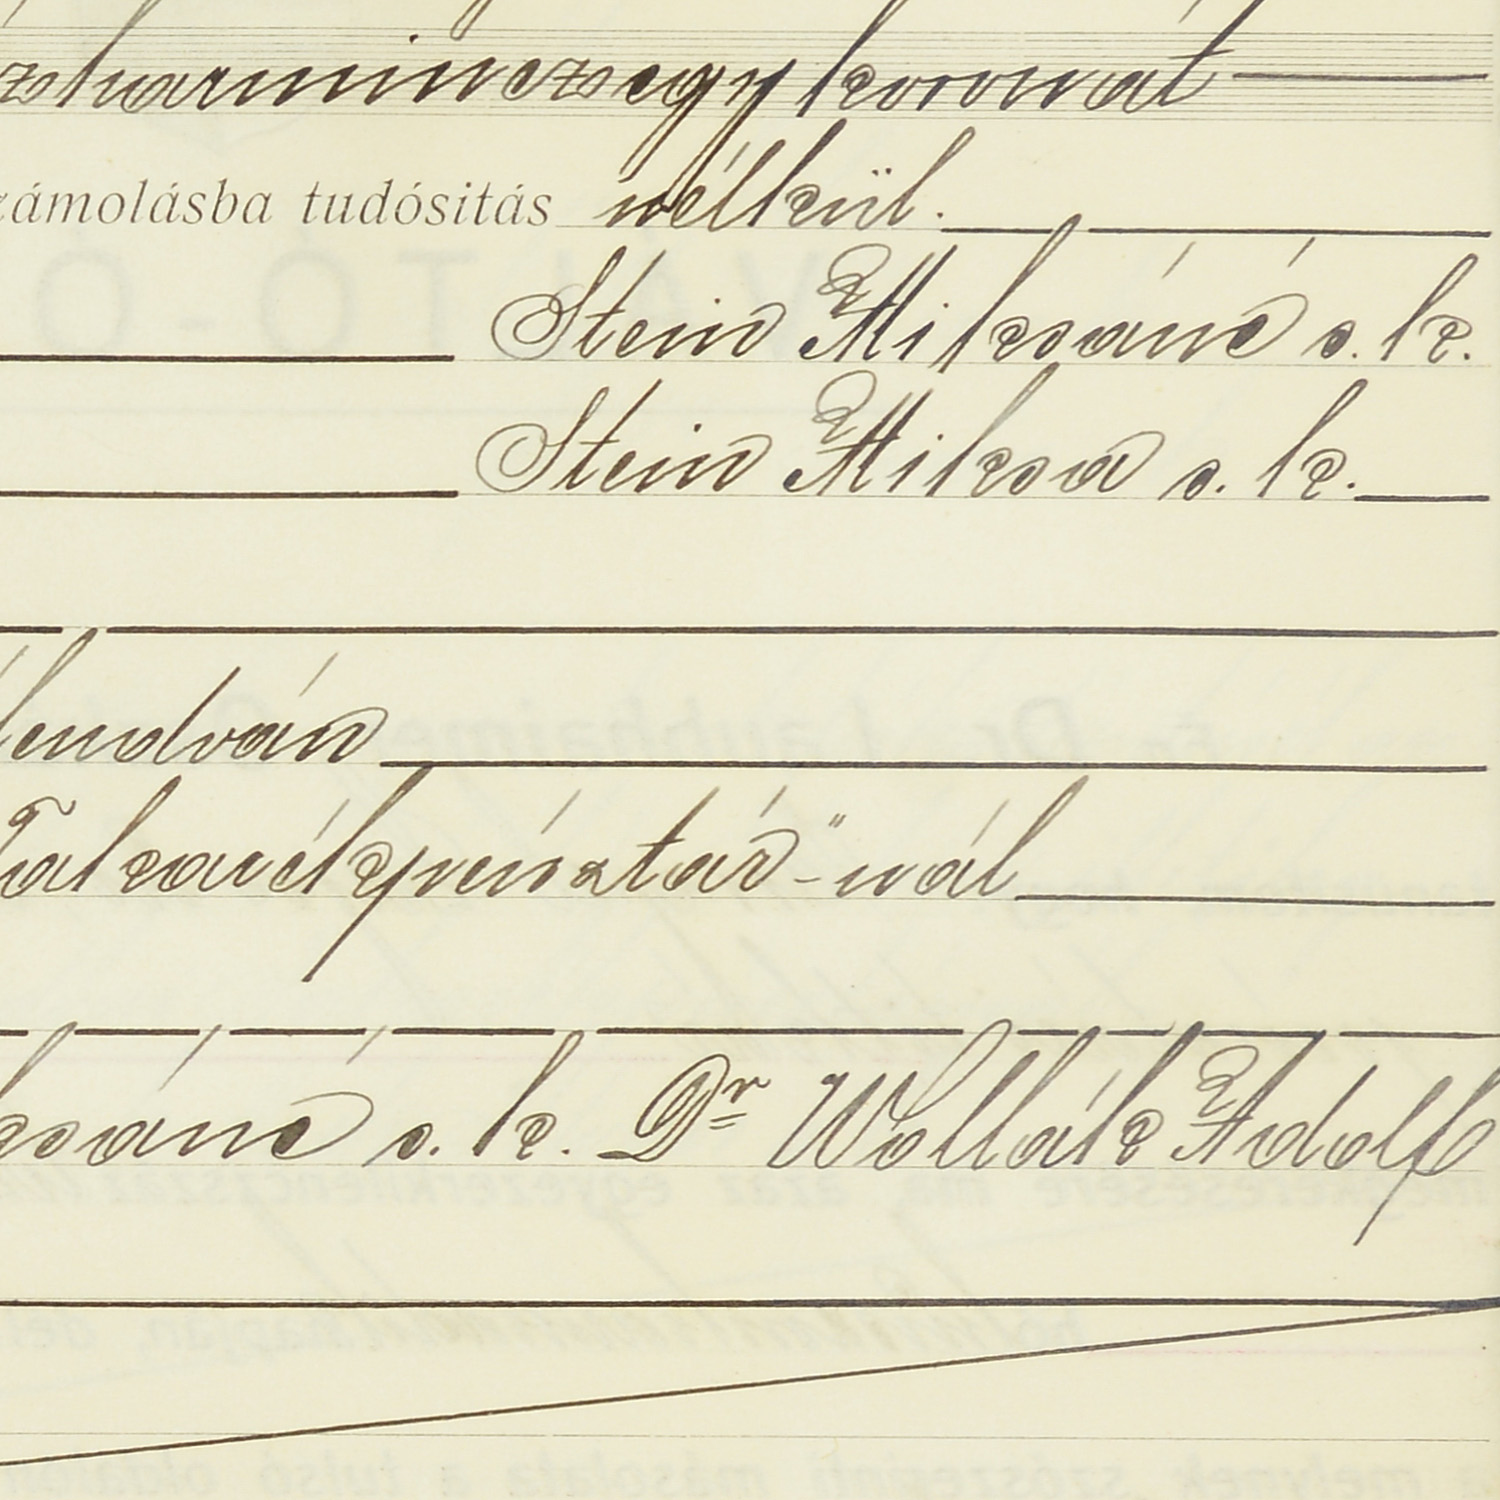 zharminczegy koronát
zámolásba tudósitás nélkül.
Stein Miksáné s. k.
Stein Miksa s. k.
lendván
Takarékpénztár"-nál
ksáné s. k. Dr Wollák Adolf